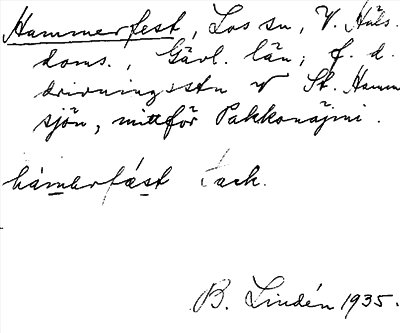 Hammerfest, Los sn, V. Häls.
doms., Gävl. län; f. d.
drivningsstn V St. Hamm
sjön, mittför Pakkonäjmi.
hámerfást Jack.
B. Lindén 1935.